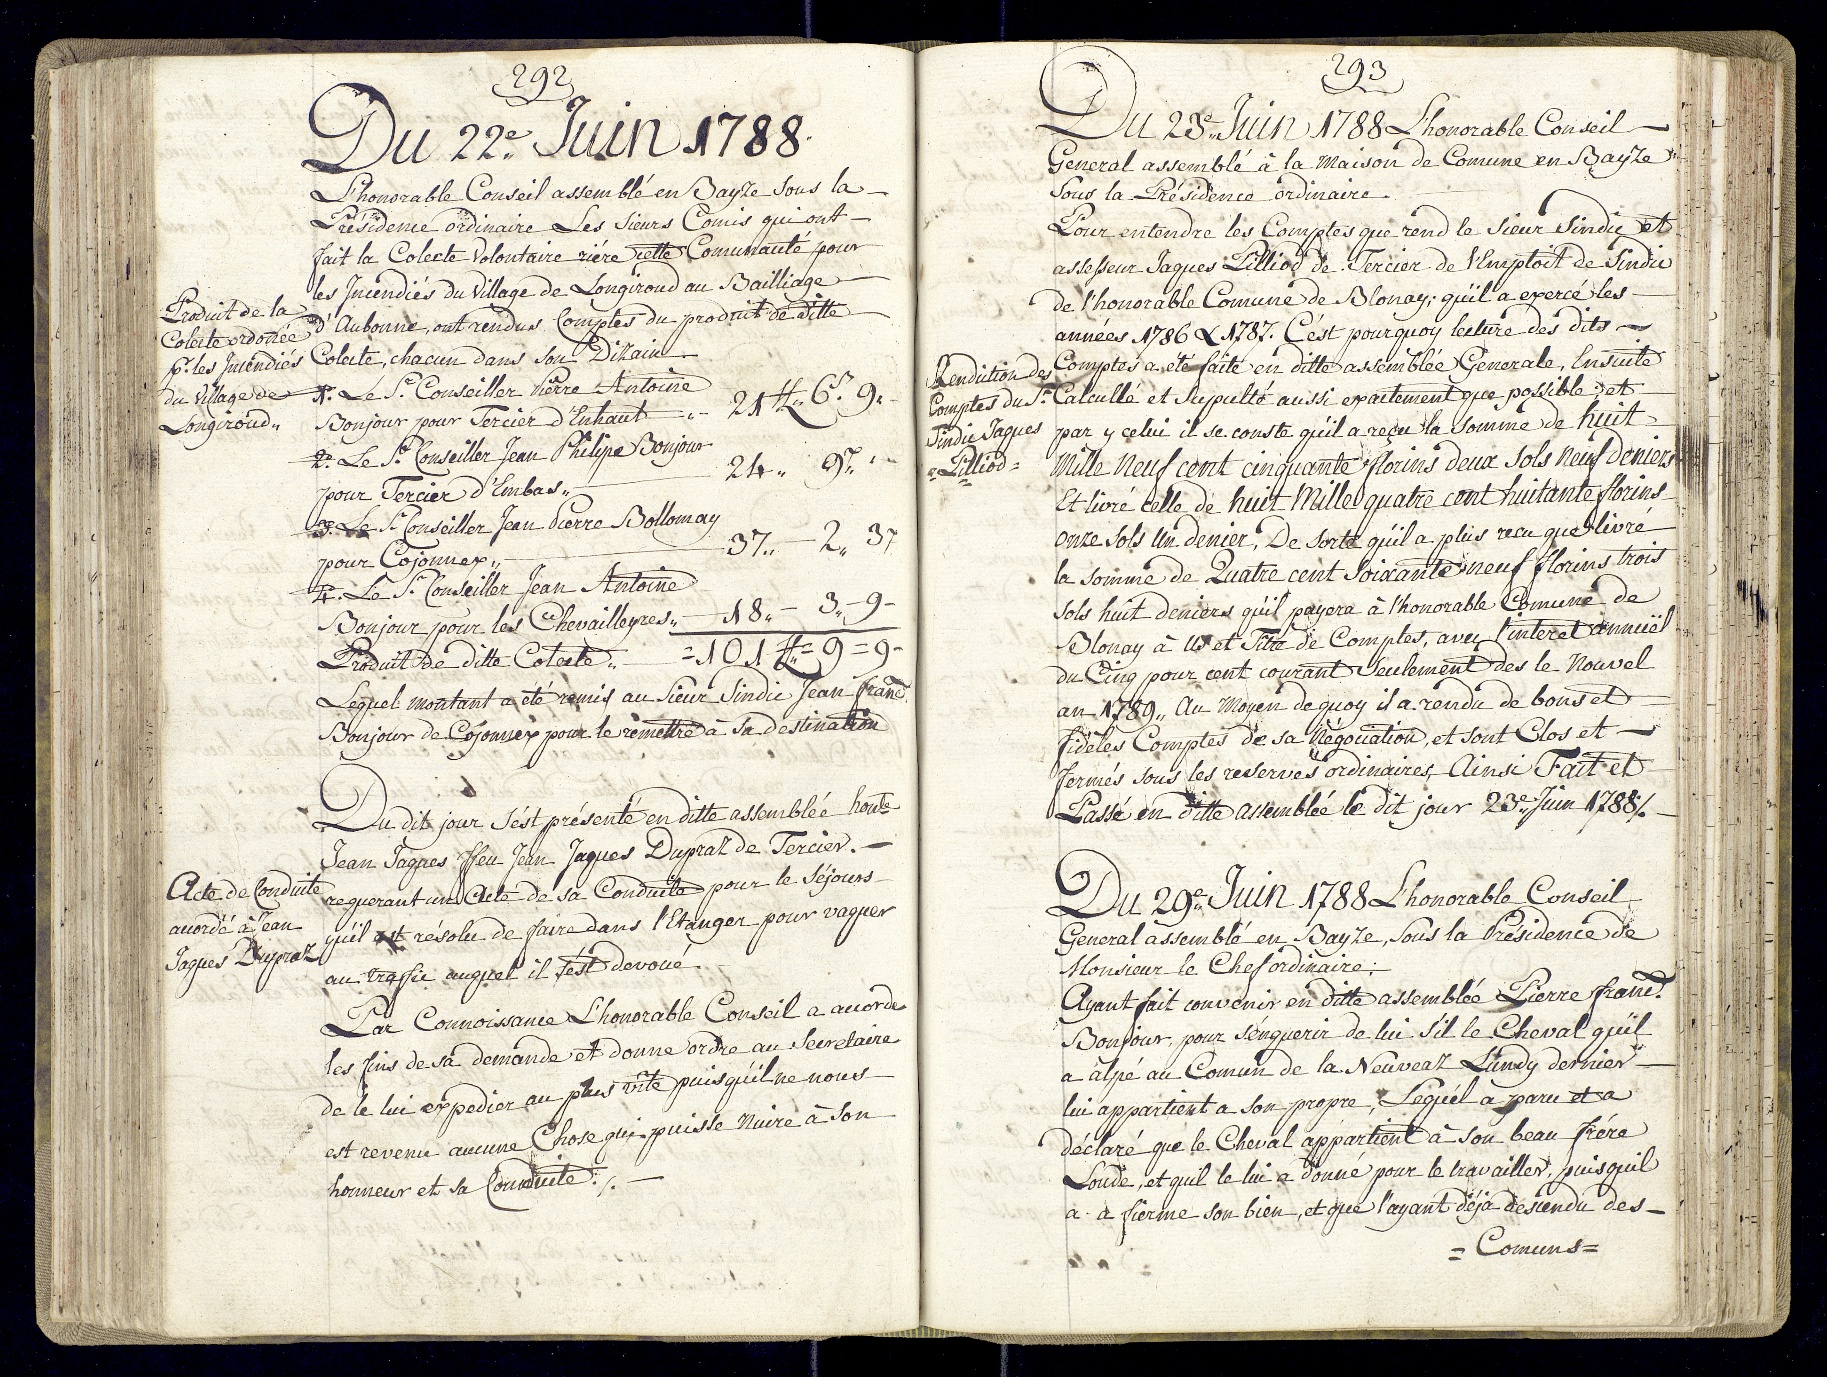 292
Du 22e. Juin 1788.
L'honorable Conseil assemblé en Bayze sous la
Présidence ordinaire Les Sieurs Comis qui ont
fait la Colecte Volontaire rière cette Comunauté pour
les Incendiés du Village de Longiroud au Bailliage
d'Aubonne, ont rendus Comptes du produit de ditte
Colecte, chacun dans son Dizain
Produit de la
Colecte ordonée
pr. les Incendiés
du Village de
Longiroud„
1º. Le Sr. Conseiller Pierre Antoine
Bonjour pour Tercier d'Enhaut „ 21 ff„ 6 s. 9„
2º. Le Sr. Conseiller Jean Philipe Bonjour
pour Tercier d'Embas„ 24„ 9„ „
3º. Le Sr. Conseiller Jean Pierre Bollomay
pour Cojonnex„ 37„ 2„ 3
4º. Le Sr. Conseiller Jean Antoine
Bonjour pour les Chevailleyres„ 18„ 3„ 9
Produit de ditte Colecte„ = 101 ff„ = 9 = 9
Lequel montant a été remis au Sieur Sindic Jean franc.
Bonjour de Cojonnex pour le remettre à sa destination
Du dit jour s'ést présenté en ditte assemblée honte
Jean Jaques ffeu Jean Jaques Dupraz de Tercier.
requerant un Acte de sa Conduite pour le séjours
qu'il est résolu de faire dans l'Etanger pour vaguer
au trafic auquel il s'ést devoué
Acte de Conduite
acordé à Jean
Jaques Dupraz
Par Connoissance L'honorable Conseil a acordé
les fins de sa demande et donne ordre au Secretaire
de le lui expedier au plus vite puisqu'il ne nous
est revenu aucune Chose qui puisse Nuire à son
honneur et sa Conduite ./.
293
Du 23e. Juin 1788 L'honorable Conseil
General assemblé à la Maison de Comune en Bayze
sous la Présidence ordinaire
Pour entendre les Comptes que rend le Sieur Sindic et
assesseur Jaques Pilliod de Tercier de l'Emploit de Sindic
de l'honorable Comune de Blonay; qu'il a exercé les
années 1786 & 1787. C'ést pourquoy lecture des dits
Comptes a été faite en ditte assemblée Generale, Ensuite
Calcullé et Suputté aussi exactement que possible; et
par y celui il se conste qu'il a reçu la somme de huit
Mille Neuf cent cinquante florins deux Sols Neuf deniers
Rendiition des
Comptes du Sr.
Sindic Jaques
= Pilliod =
Et livré celle de huit Mille quatre cent huitante florins
onze Sols Un denier, De sorte qu'il a plus reçu que livré
la somme de Quatre cent Soixante neuf florins trois
Sols huit deniers qu'il payera à l'honorable Comune de
Blonay à Us et Titre de Comptes, avec l'interet annuël
du Cinq pour cent courant Seulement des le Nouvel
an 1789„ Au Moyen de quoy il a rendu de bons et
fidèles Comptes de sa Négociation, et sont Clos et
fermés sous les reserves ordinaires, Ainsi Fait et
Passé en ditte assemblée le dit jour 23e. Juin 1788 ./.
Du 29e. Juin 1788 L'honorable Conseil
General assemblé en Bayze, sous la Présidence de
Monsieur le Chef ordinaire;
Ayant fait convenir en ditte assemblée Pierre franc.
Bonjour pour s'énquerir de lui s'il le Cheval qu'il
a alpé au Comun de la Neuveaz Lundy dernier
lui appartient a son propre, Lequel a paru et a
déclaré que le Cheval appartient à son beau frère
Loude, et quil le lui a donné pour le travailler, puisquil
a à fierme son bien, et que l'ayant déja descendu des
= Comuns =